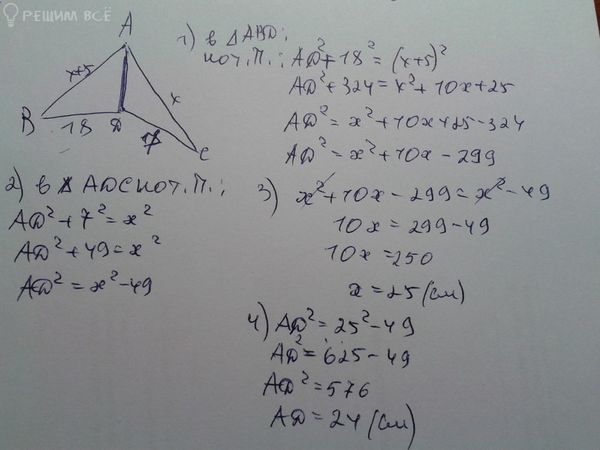 РЕШИМ ВСЁ
A
x+5
x
B
18
D
7
C
1) в △ABD:
по т.П.: AD² + 18² = (x+5)²
AD² + 324 = x² + 10x + 25
AD² = x² + 10x + 25 - 324
AD² = x² + 10x - 299
2) в △ ADC по т.П.:
AD² + 7² = x²
AD² + 49 = x²
AD² = x² - 49
3) x² + 10x - 299 = x² - 49
10x = 299 - 49
10x = 250
x = 25 (см)
4) AD² = 25² - 49
AD² = 625 - 49
AD² = 576
AD = 24 (см)